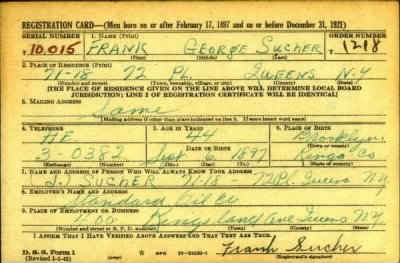 REGISTRATION CARD—(Men born on or after February 17, 1897 and on or before December 31, 1921)
SERIAL NUMBER 1. NAME (Print) ORDER NUMBER
T10,015 FRANK GEORGE SUCHER T1218
(First) (Middle) (Last)
2. PLACE OF RESIDENCE (Print)
71-18 72 PL. QUEENS N.Y
(Number and street) (Town, township, village, or city) (County) (State)
[THE PLACE OF RESIDENCE GIVEN ON THE LINE ABOVE WILL DETERMINE LOCAL BOARD
JURISDICTION; LINE 2 OF REGISTRATION CERTIFICATE WILL BE IDENTICAL]
3. MAILING ADDRESS
Same
[Mailing address if other than place indicated on line 2. If same insert word same]
4. TELEPHONE 5. AGE IN YEARS 6. PLACE OF BIRTH
HE 44 Brooklyn
DATE OF BIRTH (Town or county)
3-0382 1897 Kings Co
(Exchange) (Number) (Mo.) (Day) (Yr.) (State or country)
7. NAME AND ADDRESS OF PERSON WHO WILL ALWAYS KNOW YOUR ADDRESS
SUCHER 71-18 - 72 Pl. Queens N.Y.
8. EMPLOYER'S NAME AND ADDRESS
Standard Oil Co
9. PLACE OF EMPLOYMENT OR BUSINESS
Kingsland Ave Queens N.Y
(Number and street or R. F. D. number) (Town) (County) (State)
I AFFIRM THAT I HAVE VERIFIED ABOVE ANSWERS AND THAT THEY ARE TRUE.
D. S. S. Form 1
(Revised 1-1-42) GPO Frank Sucher
(Registrant's signature)